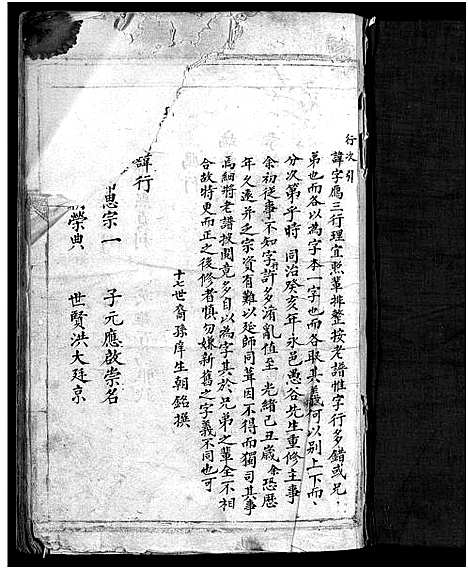 行次引
諱字應三行理宜照輩排整按老譜惟字行多錯或兄
弟也而各以為字本一字也而各取其義何以別上下而
分次第乎時 同治癸亥年永邑愚谷先生重修主事
余初從事不知字許多淆亂值至 光緒己丑歲余恐歷
年久遠并乏宗資有難以延師同葺因不得而獨司其事
焉細將老譜披閱竟多自以為字其於兄弟之輩全不相
合故特更而正之後修者慎勿嫌新舊之字義不同也可
十七世裔孫庠生朝銘撰
諱行
思宗一 子元應啟崇名
榮典 世賢洪大廷京